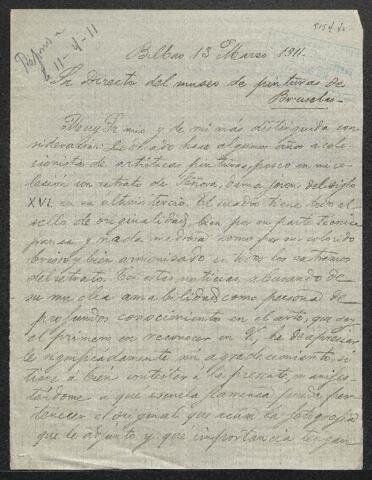 Repondu
le 11-4-11
5154/
Bilbao 13 Marzo 1911.
Sr Director del museo de pinturas de
Bruselas.
Muy Sr mio y de mi más distinguida con
sideración: Dedicado hace algunos años a cole
cionista de artisticas pinturas, poseo en mi co
lección un retrato de Señora, dama joven del siglo
XVI. en su ultimo tercio. El cuadro tiene todo el
sello de originalidad, bien por su parte tecnica
y nada medrosa como por su colorido
brioso y bien armonizado en todos los extremos
del retrato. Con estas noticias, abusando de
su mucha amabilidad, como persona de
profundos conocimientos en el arte, que soy
el primero en reconocer en V, he de apreciar
le significadamente mi agradecimiento, si
tiene á bien contestar á la presente, manifes
tandome a que escuela flamenca pueda per
tenecer el original que acusa la fotografía
que le adjunto y que importancia tengan